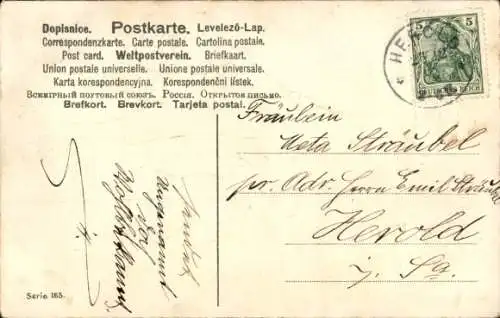 Dopisnice. Postkarte. Levelező-Lap.
Correspondenzkarte. Carte postale. Cartolina postale.
Post card. Weltpostverein. Briefkaart.
Union postale universelle. Unione postale universale.
Karta korespondencyjna. Korespondenční lístek.
Всемірный почтовый союзъ. Россія. Открытое письмо.
Brefkort. Brevkort. Tarjeta postal.
5 5
DEUTSCHES REICH
Fräulein
Meta Sträubel
pr. Adr. Herrn Emil Sträubel
Herold
i. Sa.
Serie 165.